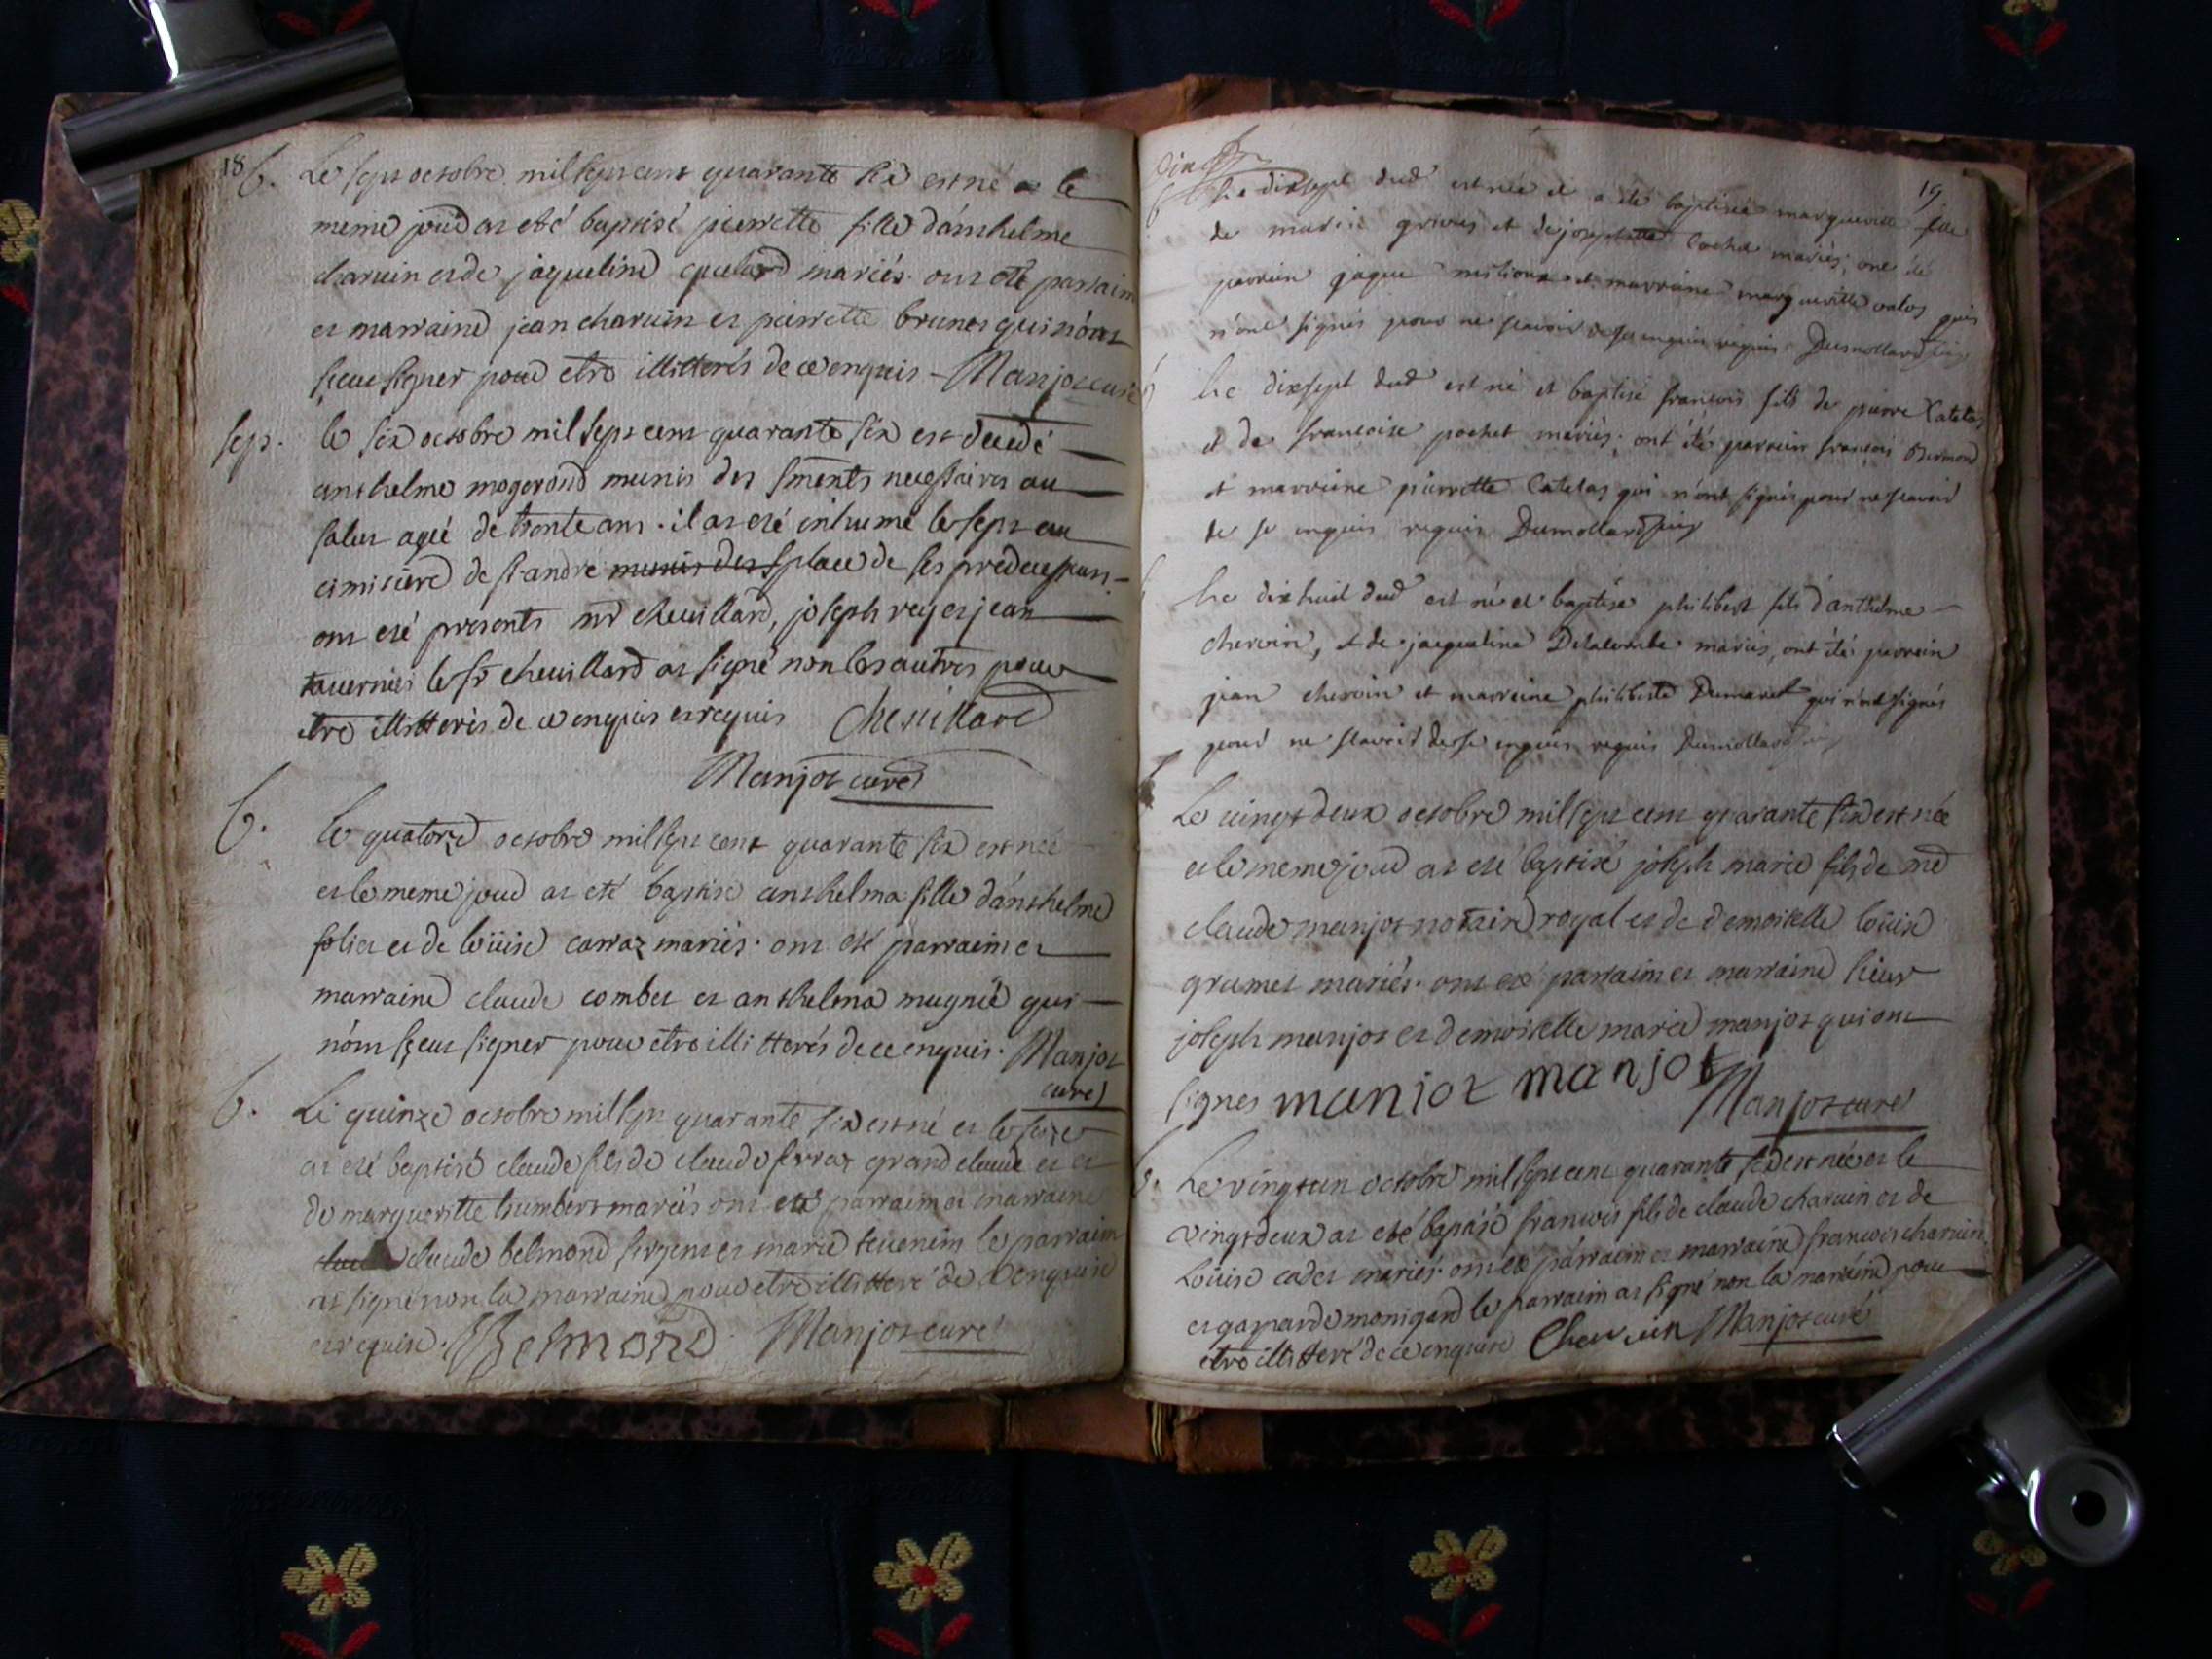 18
b. Le sept octobre mil sept cent quarante six est né et le
meme jour at eté baptisé pierrette fille d'anthelme
charuin et de jaqueline mariés. ont eté parrain
et marraine jean charuin et pierrette brunet qui n'ont
sceu signer pour etre illitterés de ce enquis - Manjot curé
sep. le six octobre mil sept cent quarante six est decedé
anthelme mogerond munis des sments necessaires au
salut agé de trente ans. il at eté inhumé le sept au
cimitiere de st. andré munis des s place de ses predecesseurs.
ont eté presents mr cheuillard, joseph rey et jean
tauernier le sr cheuillard at signé non les autres pour
etre illitterés de ce enquis et requis Cheuillard
Manjot curé
b. le quatorze octobre mil sept cent quarante six est née
et le meme jour at eté baptisé anthelma fille d'anthelme
foliet et de loüise carraz mariés. ont eté parrain et
marraine claude combet et anthelma mugnié qui
n'ont sçeut signer pour etre illitterés de ce enquis. Manjot
curé
b. Le quinze octobre mil sept quarante six est né et le seize
at eté baptisé claude fils de claude ferraz grand claude et et
de margueritte humbert mariés ont eté parrain et marraine
claude belmond sergent et marie teuenin le parrain
at signé non la marraine pour etre illitteré de ce enquise
et requise. Belmond. Manjot curé
19
b Le dixsept dud est née et a été baptisée margueritte fille
de marie et de josephte mariés; ont été
parrain jaque et marraine margueritte qui
n'ont signés pour ne scavoir de ce enquis requis Dumollard
Le dixsept dud est né et baptisé francois fils de pierre Catelas
et de francoise pochet mariés; ont été parrain francois
et marraine pierrette Catelas qui n'ont signés pour ne scavoir
de ce enquis requis Dumollard
Le dixhuit dud est né et baptisé philibert fils d'anthelme
chervin, et de jacqueline Delacombe mariés, ont été parrain
jean chervin et marraine philiberte Dumarest qui n'ont signés
pour ne scavoir de ce enquis requis Dumollard
Le vingt deux octobre mil sept cent quarante six est née
et le meme jour at eté baptisé joseph marie fils de me
claude manjot notaire royal et de demoiselle loüise
grumet mariés. ont eté parrain et marraine sieur
joseph manjot et demoiselle marie manjot qui ont
signes manjot manjot Manjot curé
b. Le vingt un octobre mil sept cent quarante six est née et le
vingt deux at eté baptisé francois fils de claude charuin et de
Loüise cadet mariés. ont eté parrain et marraine francois charuin
et gaparde monigard le parrain at signé non la marraine pour
etre illitteré de ce enquise Charuin Manjot curé